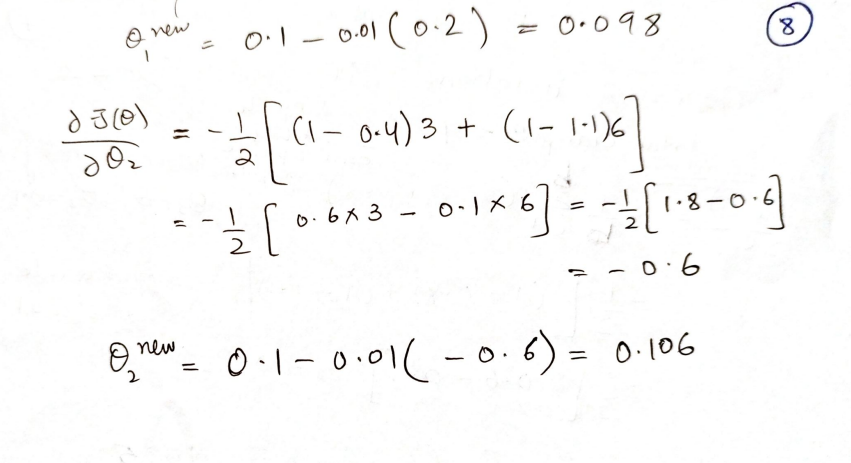 θ₁ⁿᵉʷ = 0.1 – 0.01 (0.2) = 0.098 ⑧
∂J(θ)/∂θ₂ = -1/2 [ (1 – 0.4) 3 + (1 – 1.1)6 ]
= -1/2 [ 0.6 × 3 – 0.1 × 6 ] = -1/2 [1.8 – 0.6]
= – 0.6
θ₂ⁿᵉʷ = 0.1 – 0.01( – 0.6) = 0.106